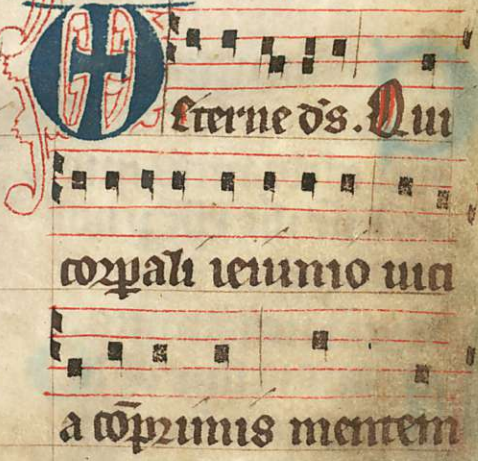 Eterne ds̄. Qui
corp̱ali ieiunio uici
a cōprimis mentem